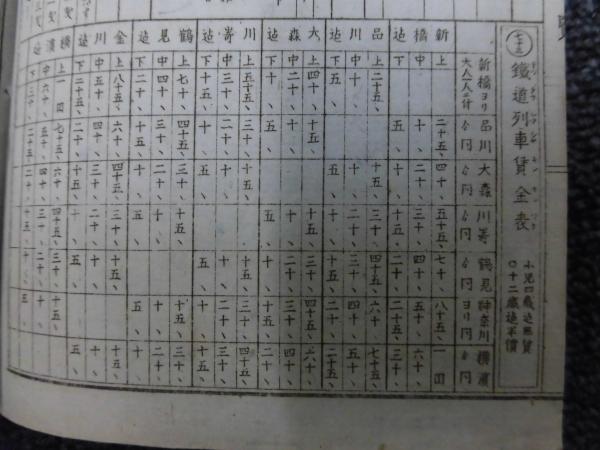 七十五 鐵道列車賃金表 小児四歳迄無賃
〇十二歳迄半價
新橋ヨリ大人一人ニ付 品川〃円 大森〃円 川寄〃円 鶴見〃円 神奈川ヨリ円 横濱〃円
新橋迄
上 二十五、 四十、 五十五、 七十、 八十五、 一円
中 十、 二十、 三十、 四十、 五十、 六十、
下 五、 十、 十五、 二十、 二十五、 三十、
品川迄
上 二十五、 十五、 三十、 四十五、 六十、 七十五、
中 十、 十、 二十、 三十、 四十、 五十、
下 五、 五、 十、 十五、 二十、 二十五、
大森迄
上 四十、 十五、 十五、 三十、 四十五、 六十、
中 二十、 十、 十、 二十、 三十、 四十、
下 十、 五、 五、 十、 十五、 二十、
川寄迄
上 五十五、 三十、 十五、 十五、 三十、 四十五、
中 三十、 二十、 十、 十、 二十、 三十、
下 十五、 十、 五、 五、 十、 十五、
鶴見迄
上 七十、 四十五、 三十、 十五、 十五、 三十、
中 四十、 三十、 二十、 十、 十、 二十、
下 二十、 十五、 十、 五、 五、 十、
金川迄
上 八十五、 六十、 四十五、 三十、 十五、 十五、
中 五十、 四十、 三十、 二十、 十、 十、
下 二十五、 二十、 十五、 十、 五、 五、
横濱迄
上 一円 七十五、 六十、 四十五、 三十、 十五、
中 六十、 五十、 四十、 三十、 二十、 十、
下 三十、 二十五、 二十、 十五、 十、 五、